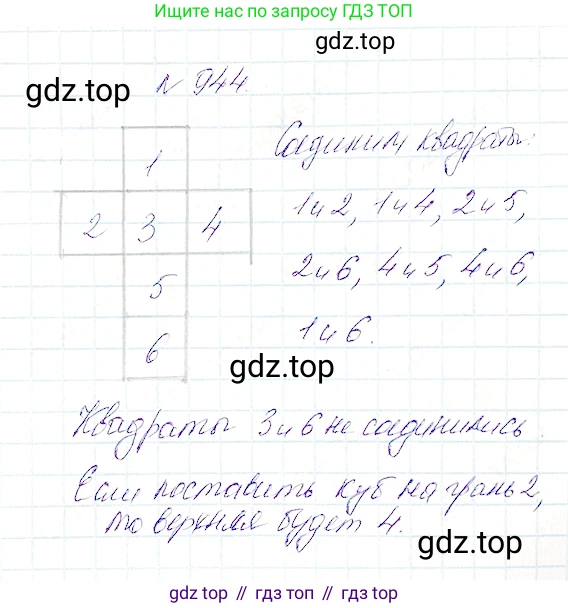 Ищите нас по запросу ГДЗ ТОП
gdz.top
gdz.top
№ 944.
Соединим квадраты:
1
1 и 2, 1 и 4, 2 и 5,
2 3 4
2 и 6, 4 и 5, 4 и 6,
5
1 и 6.
6
gdz.top
Квадраты 3 и 6 не соединились.
Если поставить куб на грань 2,
то верхняя будет 4.
gdz.top
gdz.top // гдз.топ // гдз топ